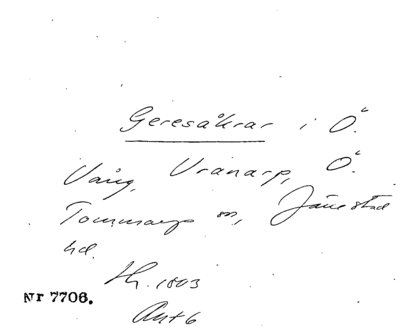 Geresåkrar i Ö.
Vång, Vranarp, Ö.
Tommarps sn, Järrestad
hd.
1803
Nr 7706.
Akt 6